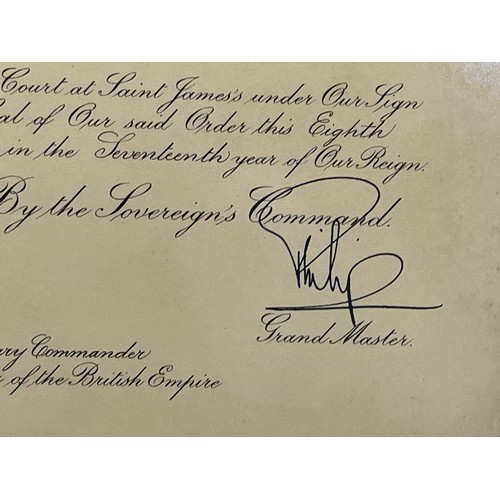 Court at Saint James's under Our Sign
of Our said Order this Eighth
in the Seventeenth year of Our Reign.
By the Sovereign's Command.
Philip
Grand Master.
Commander
of the British Empire